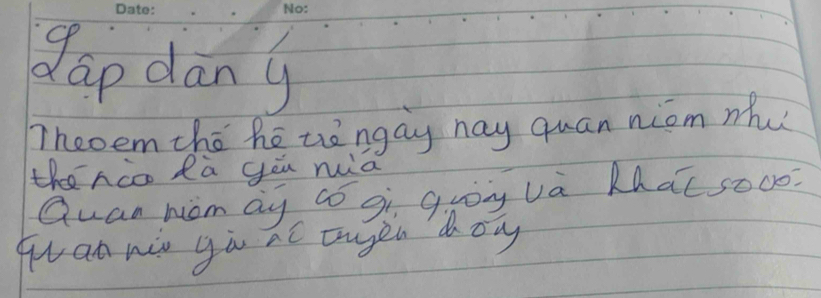 Date: No:
Lập dàn ý
Theo em thế hệ trẻ ngày nay quan niệm như
thế nào là yêu nước
Quan niệm ấy có gì giống và khác so với
quan niệm yêu nước truyền thống